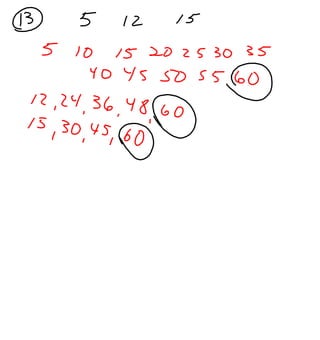 13 5 12 15
5 10 15 20 25 30 35
40 45 50 55, 60
12, 24, 36, 48, 60
15, 30, 45, 60